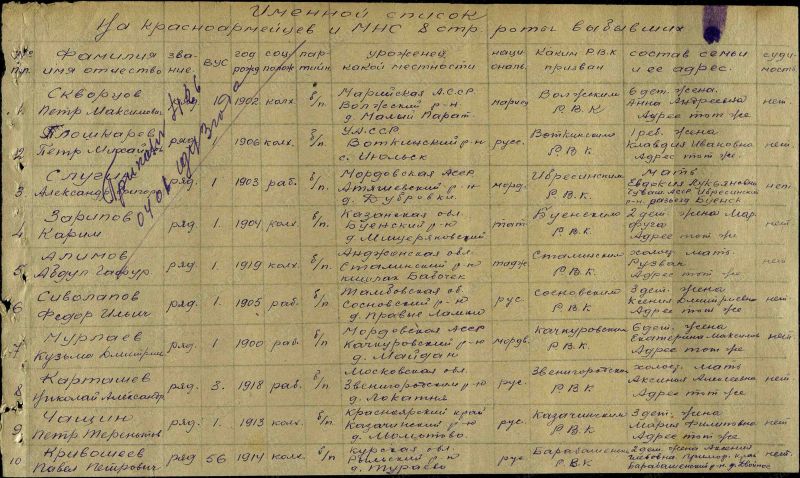 Именной список
На красноармейцев и МНС 8 стр роты выбывших
№№ п.п. Фамилия имя отчество зва-ние. ВУС год рожд соц. полож пар-тийн. уроженец какой местности наци ональ. Каким Р.В.К призван состав семьи и ее адрес. суди-мость
1. Скворцов Петр Максимович 1902 колх. б/п. Марийская АССР Волжский р-н д. Малый Парат. мариец Волжским Р.В.К 6 дет. жена. Анна Андреевна Адрес тот же нет.
2 Плошкарев Петр Михай ряд 1 1906 колх. б/п. УАССР Воткинский р-н с. Июльск русс. Воткинским Р.В.К. 1 реб. жена Клавдия Ивановна Адрес тот же. нет.
3 Слугин Александр Григор ряд. 1 1903 раб. б/п. Мордовская АССР Атяшевский р-н д. Дубровки. морд. Ибресинским Р.В.К. Мать Евдокия Лукьяновна Чуваш. АССР Ибресинский р-н. разъезд Буенск нет
4 Зарипов Карим ряд 1. 1904 колх б/п. Казанская обл. Буенский р-н д. Мищеряковский тат. Буенским Р.В.К 2 дет. жена Мар. фуга Адрес тот же нет
5 Алимов Абдул Гафур. ряд 1 1919 колх. б/п. Анджанская обл. Сталинский р-ю кишлак Бабочек тадж. Сталинским Р.В.К. холос. мать Рузван Адрес тот же нет
6 Сиволапов Федор Ильич ряд. 1 1905 раб. б/п. Тамбовская об. Сосновский р-ю д. Правые Ламки рус. Сосновским Р.В.К. 3 дет. жена Ксения Дмитриевна Адрес тот же нет
7 Чурлаев Кузьма Дмитрие ряд. 1 1900 раб. б/п Мордовская АССР Качкуровский р-ю д. Майдан мордв. Качкуровским Р.В.К. 6 дет. жена Екатерина Максимов Адрес тот же нет.
8 Карташев Николай Александр. ряд. 3. 1918 раб. б/п. Московская обл. Звенигородский р-ю д. Локатня рус. Звенигородским Р.В.К. холос. мать Аксиния Алексеевна Адрес тот же нет.
9 Чащин Петр Терентьев ряд. 1. 1913 колх. б/п. Красноярский край Казачинский р-н д. Момотово. рус. Казачинским Р.В.К 3 дет. жена Мария Филиповна Адрес тот же нет.
10 Кривошеев Павел Петрович ряд 56 1914 колх. б/п. Курская об. Рыльский р-ю д. Тураево рус Барабашенским Р.В.К 2 дет. жена Аксения Примор. край Барабашенский р-н. д. нет.
Приказ
04